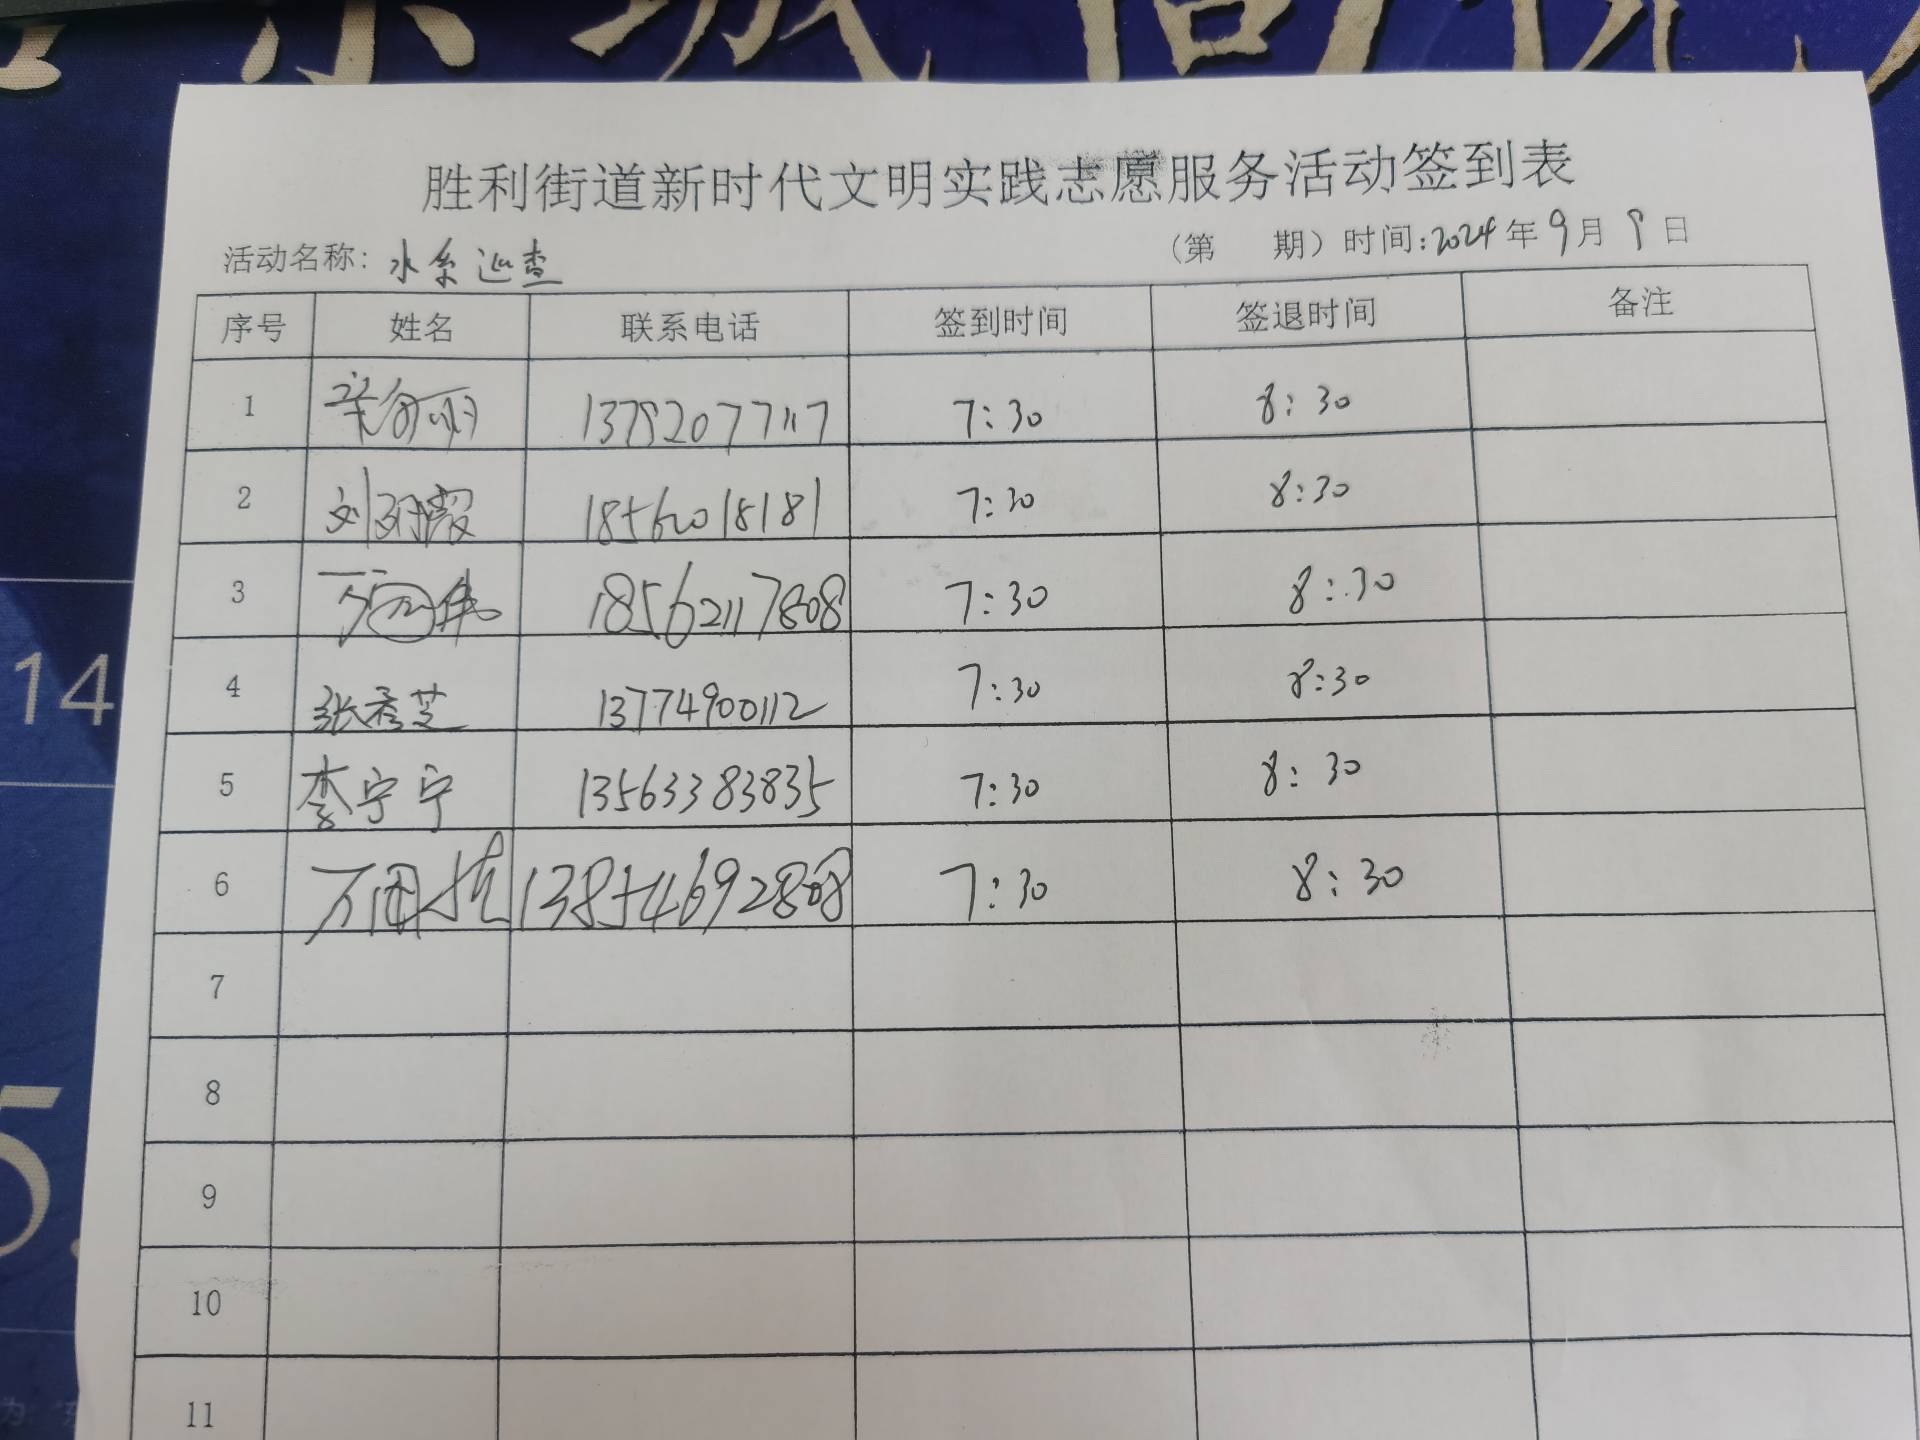 胜利街道新时代文明实践志愿服务活动签到表
活动名称: 水系巡查 (第 期) 时间: 2024年9月9日
序号 姓名 联系电话 签到时间 签退时间 备注
1 13792077117 7:30 8:30
2 18562018181 7:30 8:30
3 18562117808 7:30 8:30
4 张秀芝 13774900112 7:30 8:30
5 李宁宁 13563383835 7:30 8:30
6 13854692808 7:30 8:30
7
8
9
10
11
14
5.